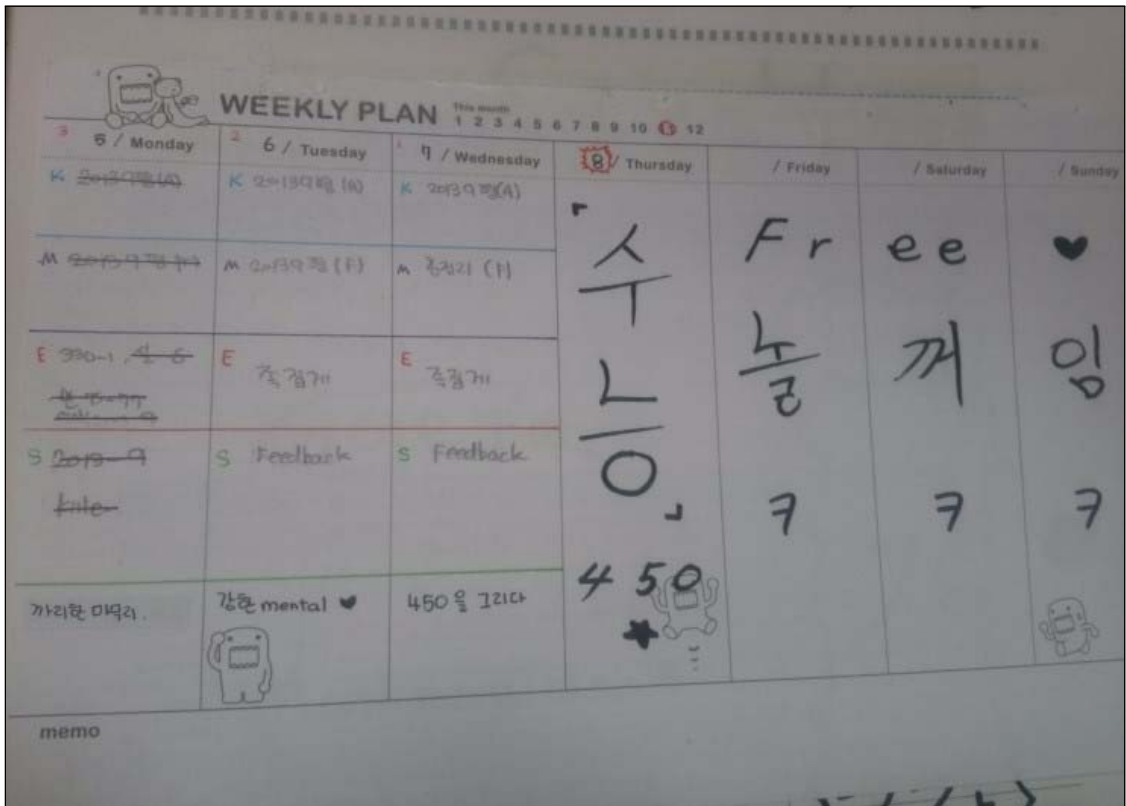 WEEKLY PLAN
This month
1 2 3 4 5 6 7 8 9 10 11 12
3 5 / Monday
2 6 / Tuesday
1 7 / Wednesday
8 / Thursday
/ Friday
/ Saturday
/ Sunday
K 20139평(A)
K 20139평(A)
K 20139평(A)
M 20139평(A)
M 20139평(A)
M 총정리 (A)
E 330-1
E 족집게
E 족집게
S 2013-9
S Feedback
S Feedback
『수능』
450
Free ♥
놀꺼임
ㅋ ㅋ ㅋ
마무리.
강한 mental ♥
450을 그리다
memo